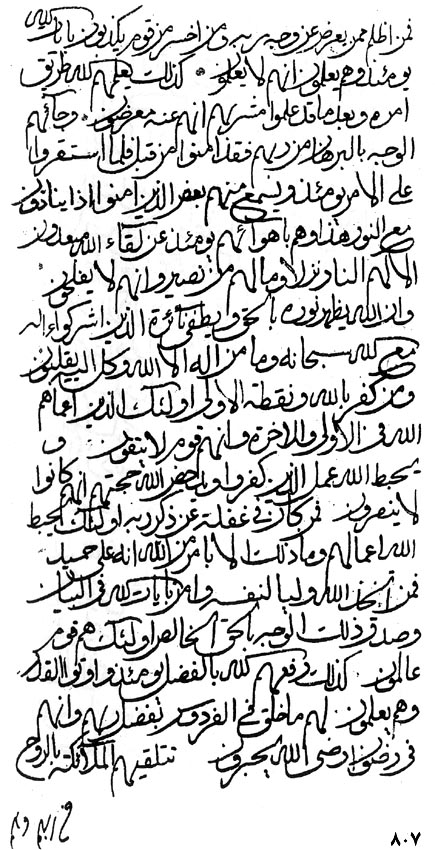 فمن اظلم ممن يعرض عن وجه ربه ومن اخسر من قوم يكذبون بايات الله
يومئذ وهم يعلمون انهم لا يعلمون كذلك يعلمهم الله طريق
امره وبعد ما قد علموا انهم عنه معرضون وجائهم
الوجه بالبرهان من ربهم فقد امنوا من قبل فلما استقروا
على الامر يومئذ ويسمع منهم بعض الذين امنوا اذا ينادون
مع النور هذا وهم باهوائهم يومئذ عن لقاء الله مبعدون
الا لهم النار نزلا وما لهم من نصير وانهم لا يفلحون
وان الله يظهر نوره بالحق ويطفي نائرة الذين اشركوا اله
مع الله سبحانه وما من اله الا الله وكل اليه يقلبون
ومن كفر بالله ونقطة الاولى اولئك الذين اعماهم
الله في الاولى والاخرة وانهم قوم لا يتقون و
يحيط الله عمل الذين كفروا ويدحض الله حجتهم انهم كانوا
لا ينصرون فمن كان في غفلة عن ذكر ربه اولئك يحيط
الله اعمالهم وما ذلك الا بامر من الله انه علي حميد
فمن اتخذ الله وليا لنفسه وامن بايات الله في البيان
وصدق ذلك الوجه بالحق الخالص اولئك هم قوم
عالمون كذلك يرفعهم الله بالفضل يومئذ واوتوا القدر
وهم يعلمون لهم ما خلق في الفردوس بفضل ربهم وانهم
في رضوان ارضى الله يحبرون تتلقيهم الملائكة بالروح
٨٠٧